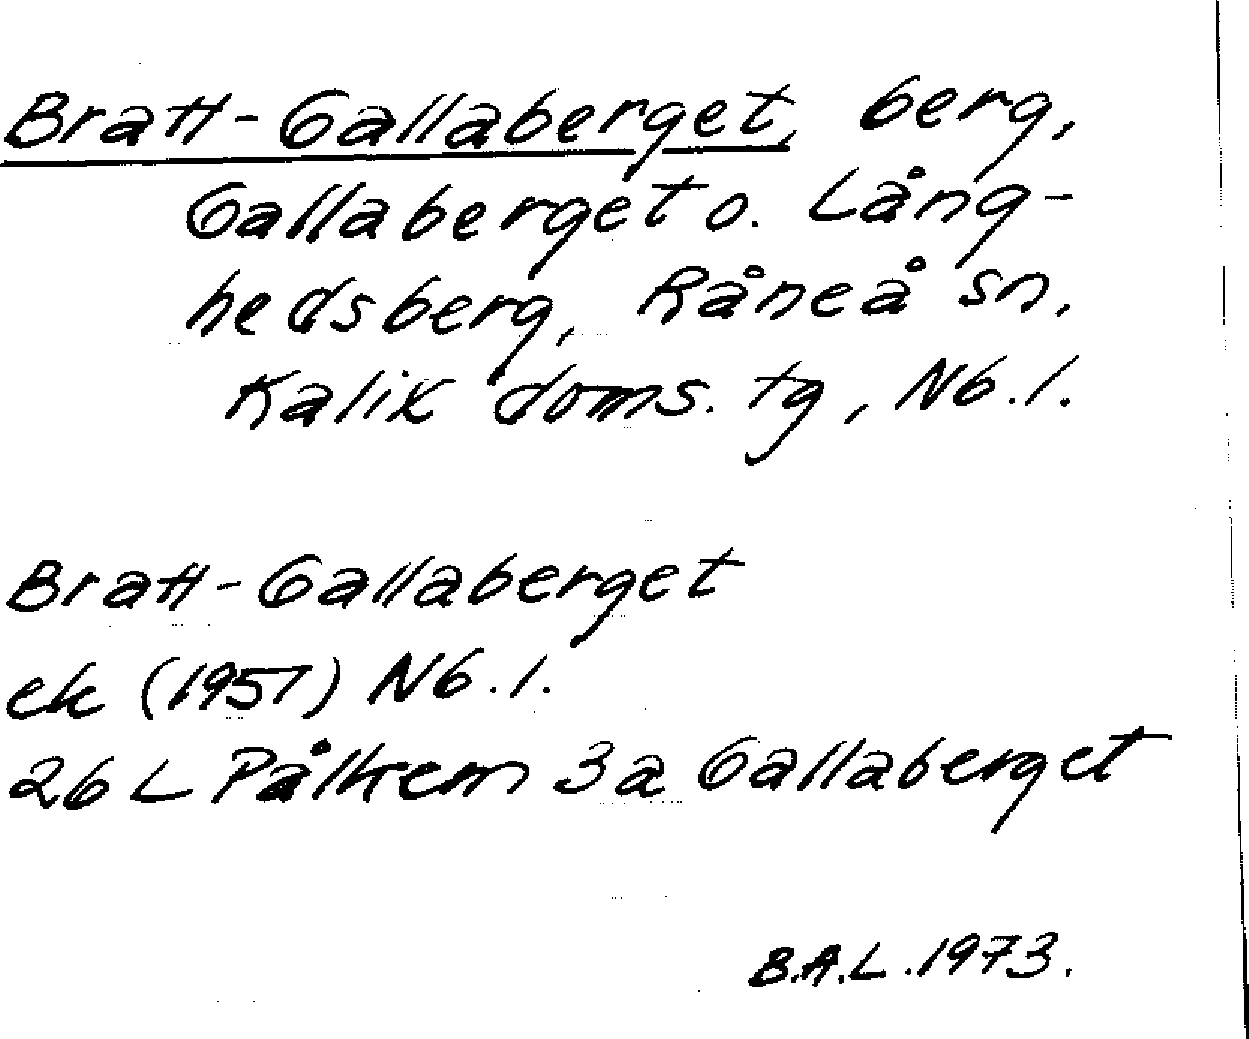 Bratt-Gallaberget, berg,
Gallaberget o. Lång-
hedsberg, Råneå sn,
Kalix doms. tg, Nb. l.
Bratt-Gallaberget
ek (1951) Nb. l.
26 L Pålkem 3a Gallaberget
B.A.L. 1973.